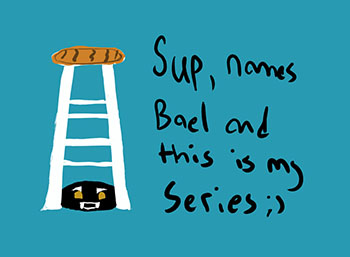 Sup, names
Bael and
this is my
series;)